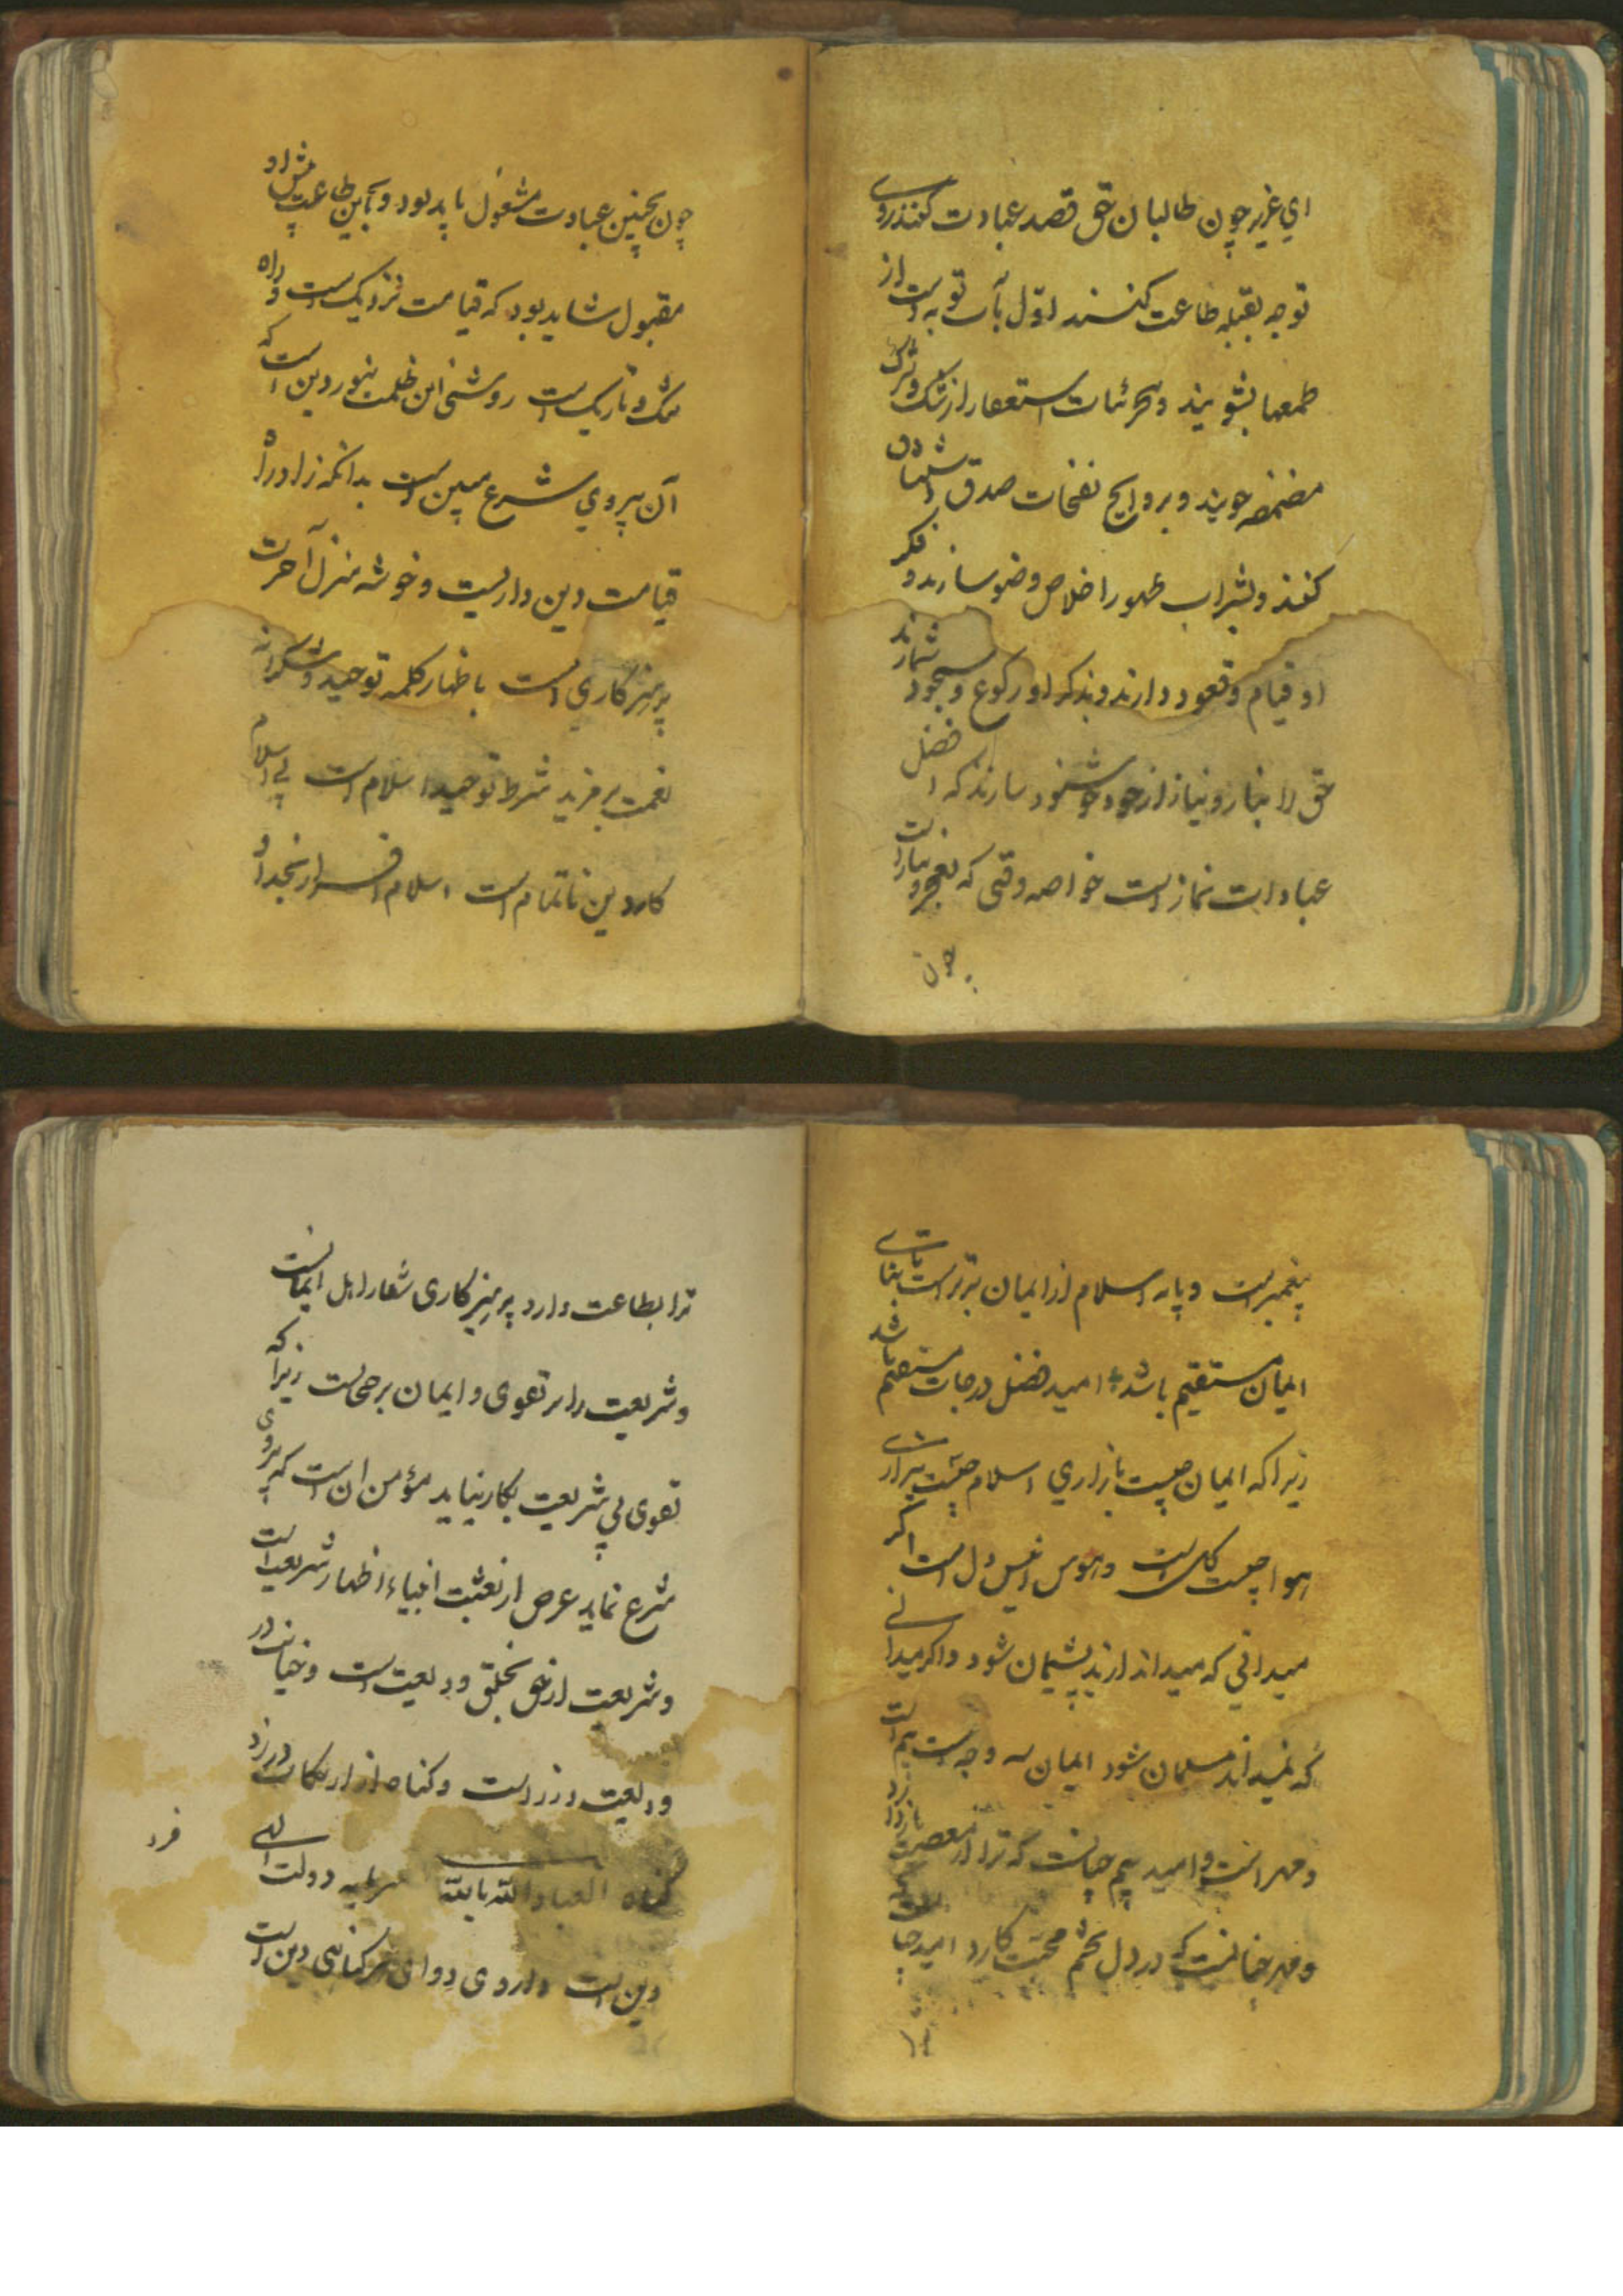 ای عزیز چون طالبان حق قصد عبادت کنند روی
توجه بقبله طاعت کنند اوّل بآب توبه دست از
طمعها بشویند و بجرئات استغفار از شک و شرک
مضمضه جویند و بروایح نفحات صدق استنشاق
کنند و بشراب طهور اخلاص وضو سازند و فکر
او قیام و قعود دارند و بذکر او رکوع و سجود شمارند
حق را بنماز و نیاز از خود خوشنود سازند که افضل
عبادات نماز است خواصه وقتی که بعجز و نیاز است
چون
چون بچنین عبادت مشغول باید بود و بآیین طاعت پیش او
مقبول شاید بود که قیامت نزدیک است و راه
تنک و تاریک است روشنی این ظلمت بنور دین است که
آن پیروی شرع مبین است بدانکه زاد راه
قیامت دین داریست و خوشه منزل آخرت
پرهیزکاری است باظهار کلمه توحید و شکرانه
نعمت بر مزید شرط توحید اسلام است بی اسلام
کار دین ناتمام است اسلام اقرار بخدا و
پیغمبرست و پایه اسلام از ایمان برترست تا بنای
ایمان مستقیم باشد امید فضل درجات مستقیم باشد
زیرا که ایمان چیست بازاری اسلام چیست بیزاری
هوا چیست کاس است و هوس انیس دل است اگر
میدانی که میداند از بد پشیمان شود و اگر میدانی
که نمیداند مسلمان شود ایمان سه وجه است بیم است
و مهر است و امید بیم چنانست که ترا از معصیت باز دارد
و مهر چنانست که در دل تخم محبّت کارد امید چنانست که
ترا
ترا بطاعت دارد پرهیزکاری شعار اهل ایمانست
و شریعت را بر تقوی و ایمان برحجست زیرا که
تقوی بی شریعت بکار نیاید مؤمن آن است که پیروی
شرع نماید غرض از بعثت انبیاء اظهار شریعت است
و شریعت از حق بخلق ودیعت است و خیانت در
ودیعت وزر است و گناه از ارتکاب وزر زد
گناه العیاذ بالله سرمایه دولت الهی
دین است داروی دوای هر گناهی دین است
فرد